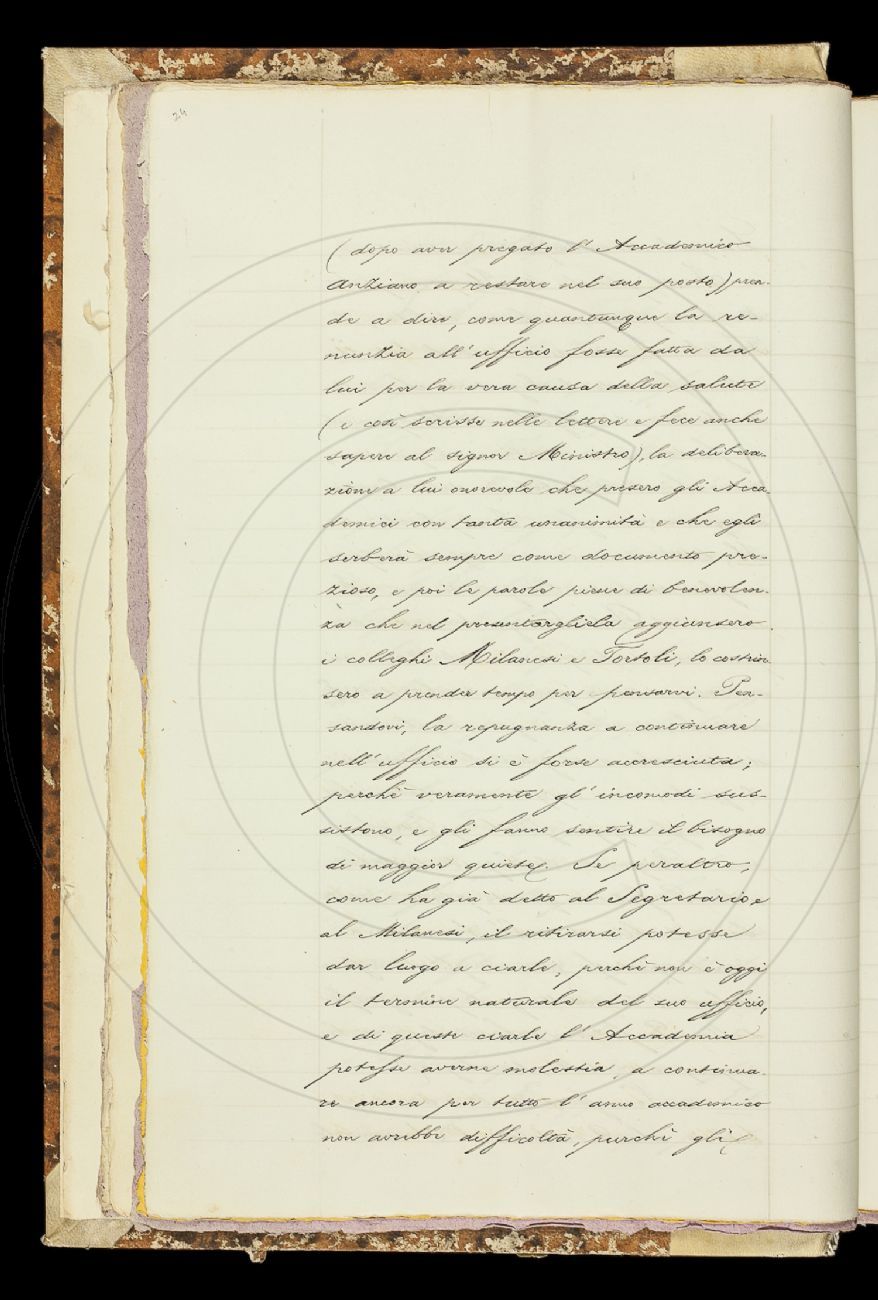 24
( dopo aver pregato l' Accademico
anziano a restare nel suo posto) pren-
de a dire, come quantunque la re-
nunzia all' ufficio fosse fatta da
lui per la vera causa della salute
( e così scrisse nelle lettere e fece anche
sapere al signor Ministro), la delibera-
zione a lui onorevole che presero gli Acca-
demici con tanta unanimità e che egli
serberà sempre come documento pre-
zioso, e poi le parole piene di benevolen-
za che nel presentargliela aggiunsero
i colleghi Milanesi e Tortoli, lo costrin-
sero a prender tempo per pensarvi. Pen-
sandovi, la repugnanza a continuare
nell' ufficio si è forse accresciuta;
perchè veramente gl' incomodi sus-
sistono, e gli fanno sentire il bisogno
di maggior quiete. Se peraltro,
come ha già detto al Segretario e
al Milanesi, il ritirarsi potesse
dar luogo a ciarle, perchè non è oggi
il termine naturale del suo ufficio,
e di queste ciarle l' Accademia
potesse averne molestia, a continua-
re ancora per tutto l' anno accademico
non avrebbe difficoltà, purchè gli